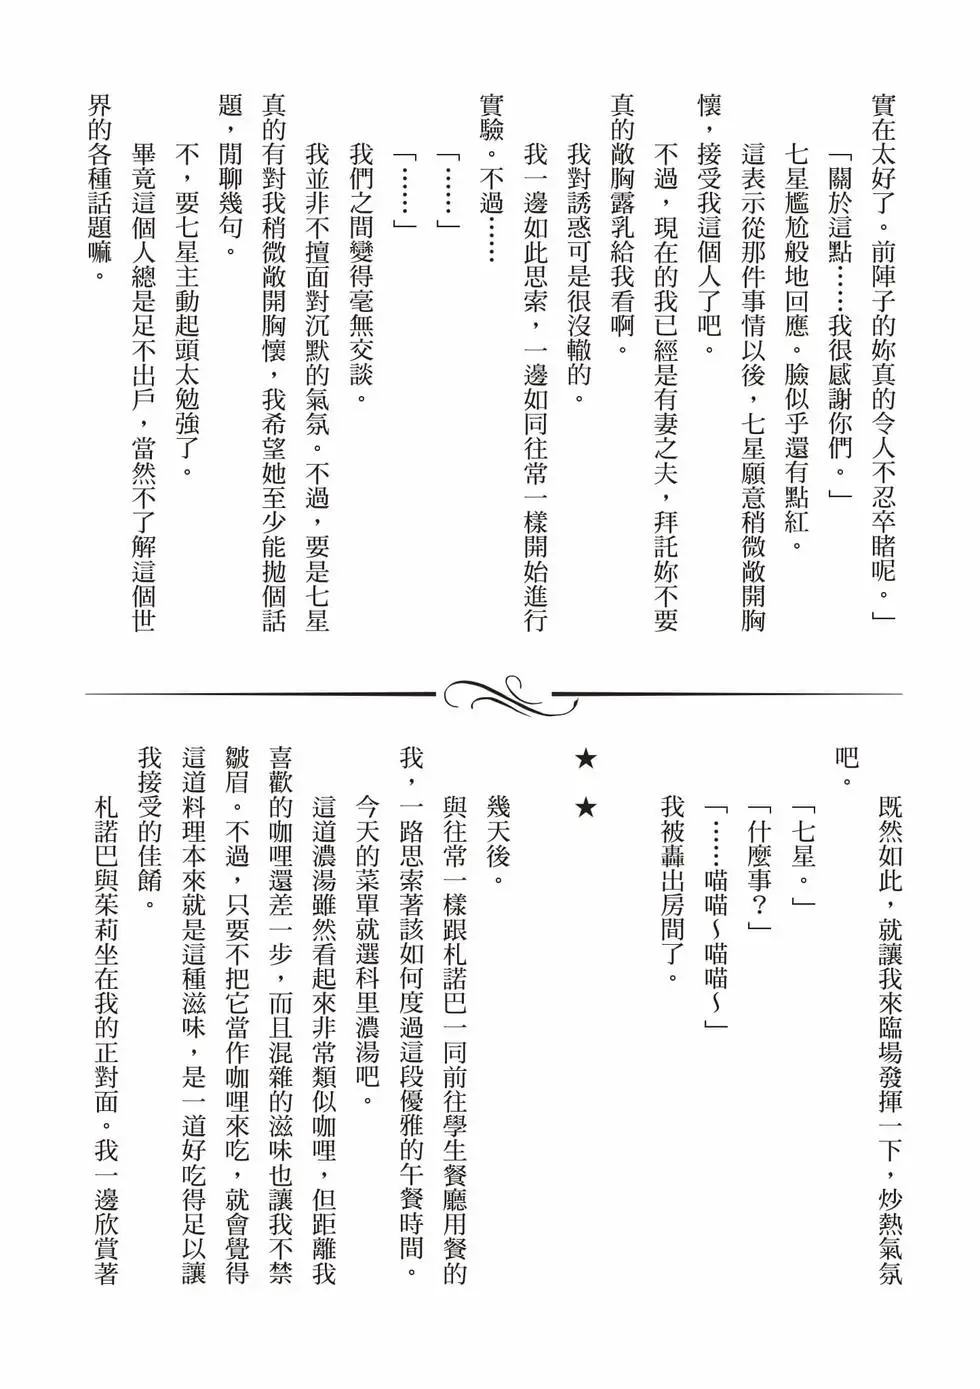 實在太好了。前陣子的妳真的令人不忍卒睹呢。」
「關於這點……我很感謝你們。」
七星尷尬般地回應。臉似乎還有點紅。
這表示從那件事情以後，七星願意稍微敞開胸
懷，接受我這個人了吧。
不過，現在的我已經是有妻之夫，拜託妳不要
真的敞胸露乳給我看啊。
我對誘惑可是很沒轍的。
我一邊如此思索，一邊如同往常一樣開始進行
實驗。不過……
「……」
「……」
我們之間變得毫無交談。
我並非不擅面對沉默的氣氛。不過，要是七星
真的有對我稍微敞開胸懷，我希望她至少能拋個話
題，閒聊幾句。
不，要七星主動起頭太勉強了。
畢竟這個人總是足不出戶，當然不了解這個世
界的各種話題嘛。
既然如此，就讓我來臨場發揮一下，炒熱氣氛
吧。
「七星。」
「什麼事？」
「……喵喵～喵喵～」
我被轟出房間了。
★ ★
幾天後。
與往常一樣跟札諾巴一同前往學生餐廳用餐的
我，一路思索著該如何度過這段優雅的午餐時間。
今天的菜單就選科里濃湯吧。
這道濃湯雖然看起來非常類似咖哩，但距離我
喜歡的咖哩還差一步，而且混雜的滋味也讓我不禁
皺眉。不過，只要不把它當作咖哩來吃，就會覺得
這道料理本來就是這種滋味，是一道好吃得足以讓
我接受的佳餚。
札諾巴與茱莉坐在我的正對面。我一邊欣賞著